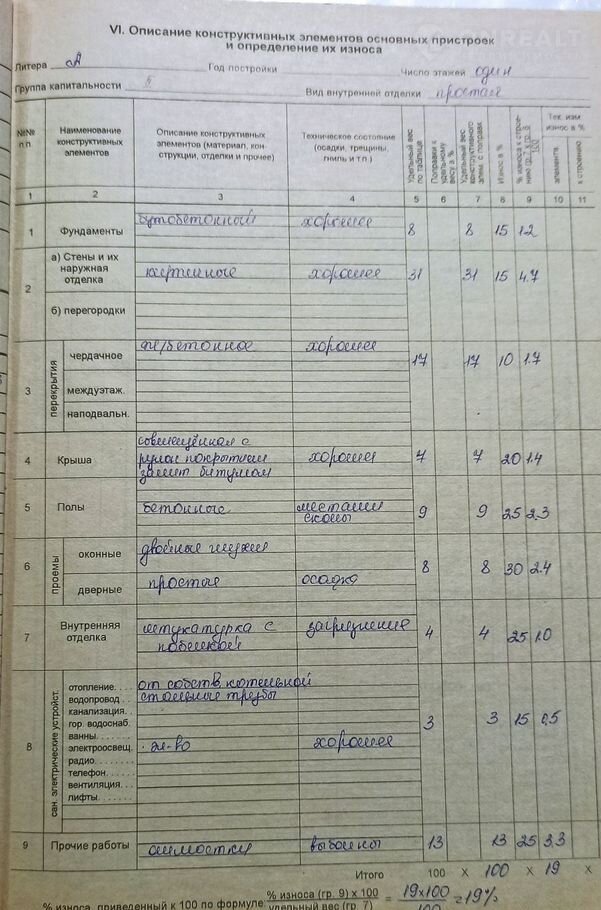 REALT
VI. Описание конструктивных элементов основных пристроек
и определение их износа
Литера А Год постройки Число этажей один
Группа капитальности Вид внутренней отделки простая
№№ п п
Наименование конструктивных элементов
Описание конструктивных элементов (материал, конструкции, отделки и прочее)
Техническое состояние (осадки, трещины, гниль и т.п.)
Удельный вес по таблице
Поправки к удельному весу в %
Удельный вес конструктивного элем. с поправк
Износ в %
% износа к строению гр.7 х гр. 8 100
Тек. изм износ в %
элемента
к строению
1 2 3 4 5 6 7 8 9 10 11
1 Фундаменты бутобетонный хорошее 8 8 15 1.2
2 а) Стены и их наружная отделка кирпичные хорошее 31 31 15 4.7
б) перегородки
3 перекрытия
чердачное ж/бетонное хорошее 17 17 10 1.7
междуэтаж.
наподвальн.
4 Крыша совмещённая с хорошее 7 7 20 1.4
рулон покрытием
залит битумом
5 Полы бетонные местами сколы 9 9 25 2.3
6 проемы
оконные двойные глухие
дверные простые осадка 8 8 30 2.4
7 Внутренняя отделка штукатурка с побелкой загрязнение 4 4 25 1.0
8 сан. электрические устройст.
отопление.... от собств. котельной
водопровод.. стальные трубы
канализация..
гор. водоснаб. 3 3 15 0,5
ванны.....
электроосвещ. эл-во хорошее
радио.....
телефон....
вентиляция...
лифты.....
9 Прочие работы отмостки выбоины 13 13 25 3.3
Итого 100 х 100 х 19 х
% износа, приведенный к 100 по формуле: % износа (гр. 9) х 100 / удельный вес (гр. 7) = 19х100 / 100 = 19%